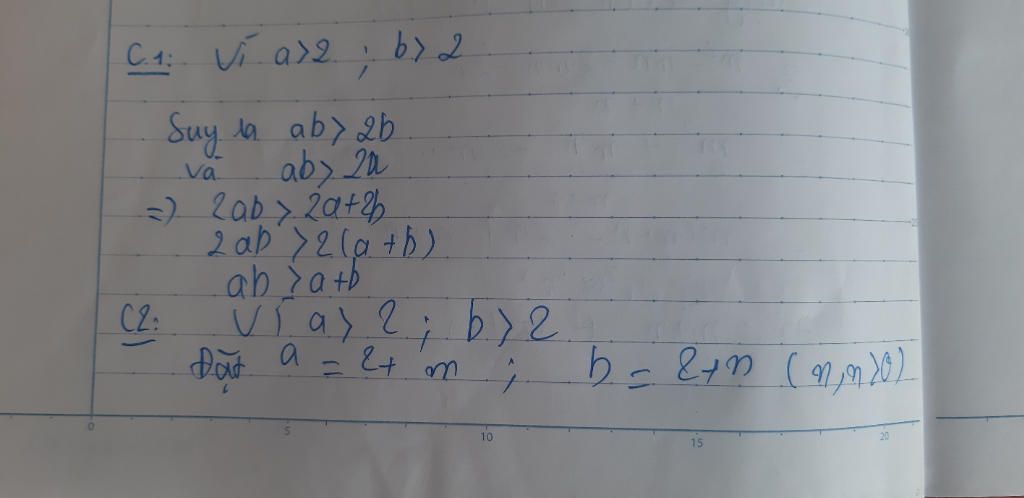 C.1: Vì a>2 ; b>2
Suy ra ab > 2b
và ab > 2a
=) 2ab > 2a+2b
2ab > 2(a+b)
ab > a+b
C2: Vì a > 2 ; b > 2
Đặt a = 2+ m ; b = 2+n (m,n>0)
0 5 10 15 20